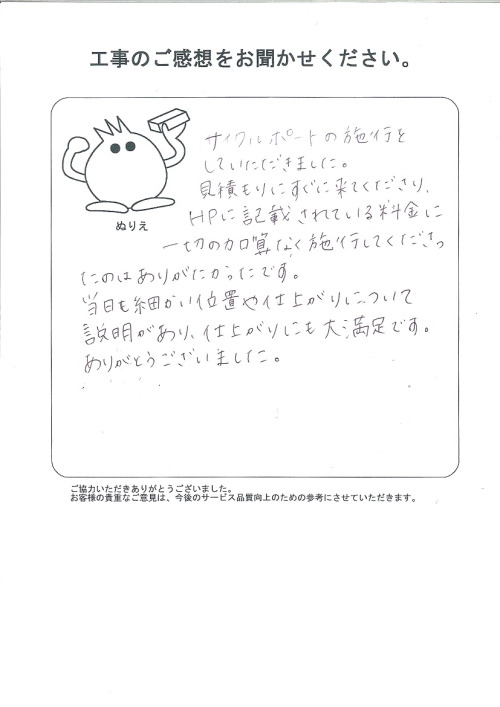 工事のご感想をお聞かせください。
サイクルポートの施行を
していただきました。
見積もりにすぐに来てくださり、
HPに記載されている料金に
ぬりえ
一切のカロ算なく施行してくださっ
たのはありがたかったです。
当日も細かい位置や仕上がりについて
説明があり、仕上がりにも大満足です。
ありがとうございました。
ご協力いただきありがとうございました。
お客様の貴重なご意見は、今後のサービス品質向上のための参考にさせていただきます。